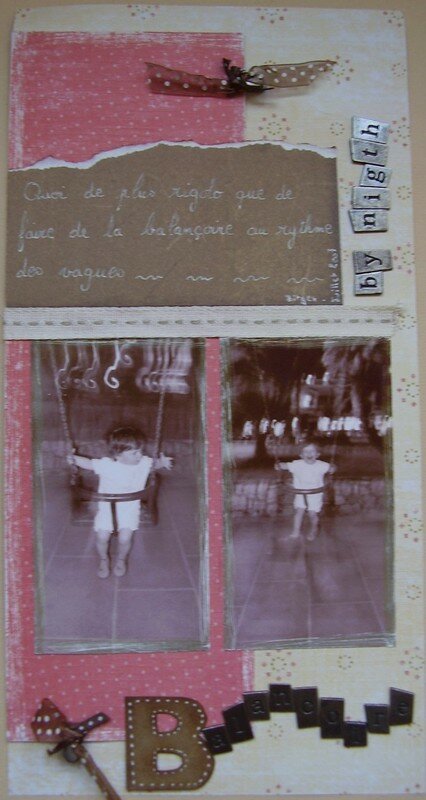 by nigth
Quoi de plus rigolo que de
faire de la balançoire au rythme
des vagues
Juillet
Balancoire